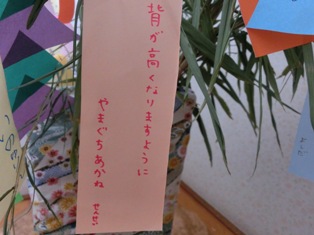 背が高くなりますように
やまぐちあかね せんせい